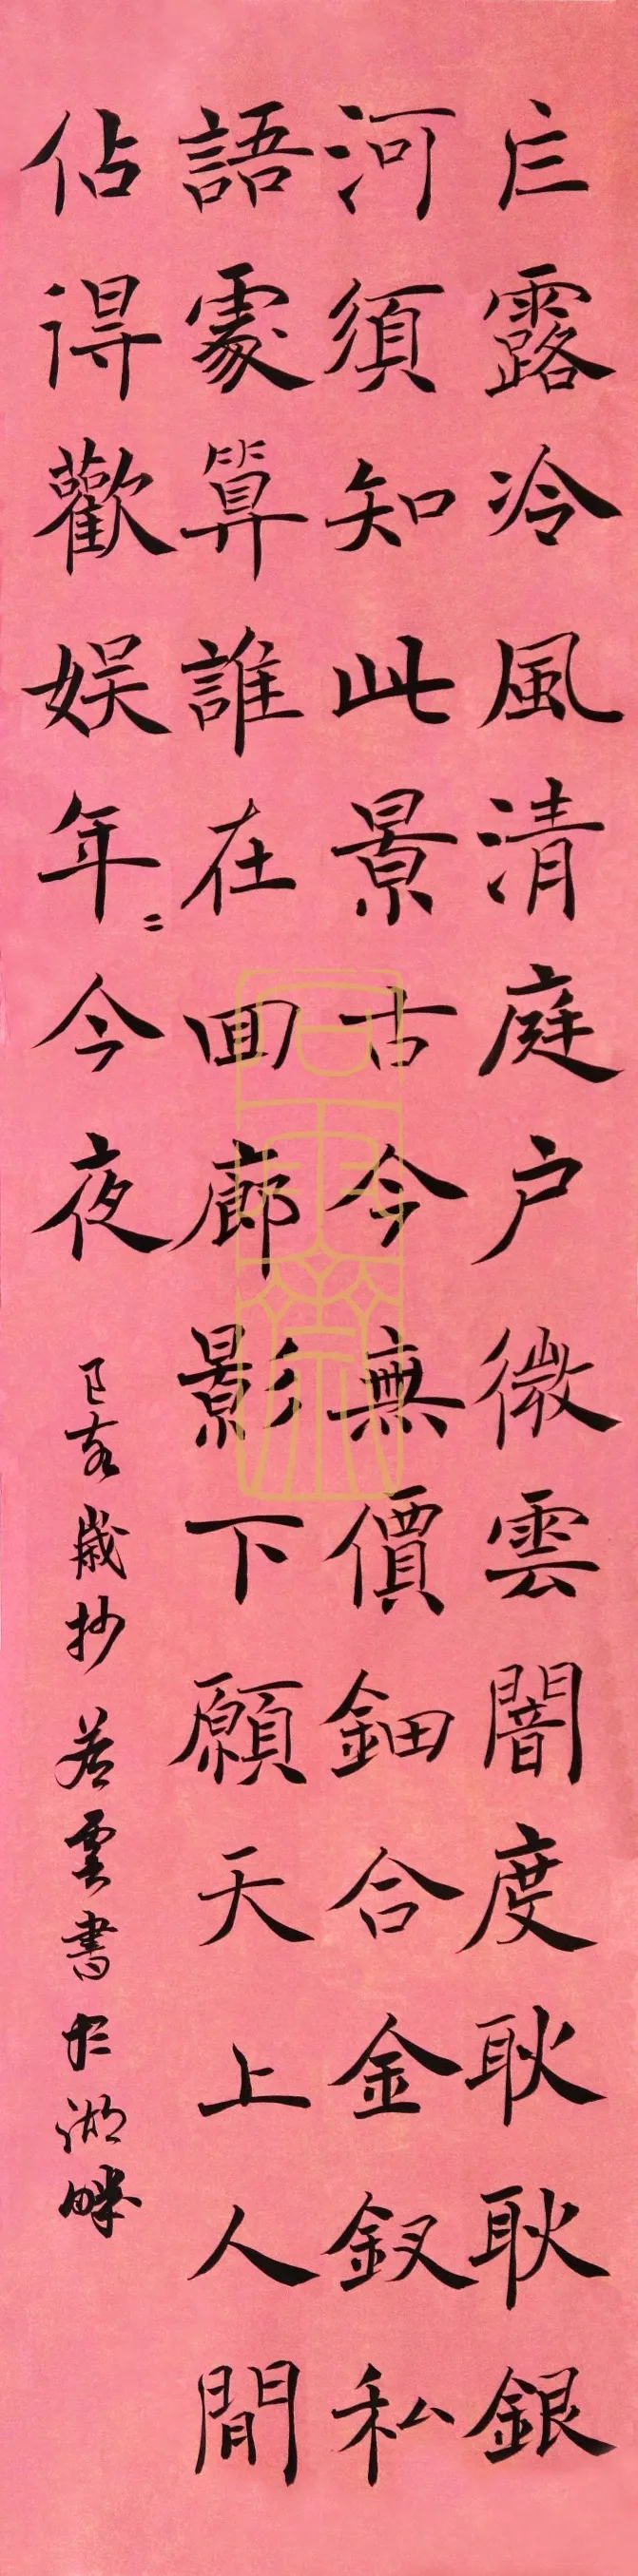 乍露冷風清庭户微雲闇度耿耿銀
河須知此景古今無價鈿合金釵私
語處算誰在囬廊影下願天上人間
佔得歡娛年〻今夜
己亥歲抄若雲書於湖畔